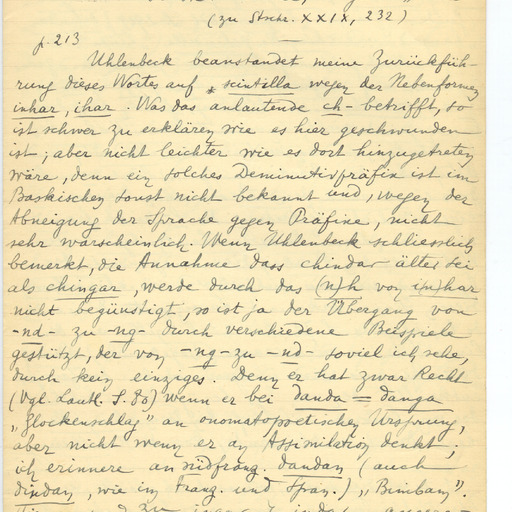 (zu Ztschr. XXIX, 232)
p. 213
Uhlenbeck beanstandet meine Zurückfüh-
rung dieses Wortes auf *scintilla wegen der Nebenformen
inhar, ihar. Was das anlautende ch- betrifft, so
ist schwer zu erklären wie es hier geschwunden
ist; aber nicht leichter wie es dort hinzugetreten
wäre, denn ein solches Deminutivpräfix ist im
Baskischen sonst nicht bekannt und, wegen der
Abneigung der Sprache gegen Präfixe, nicht
sehr warscheinlich. Wenn Uhlenbeck schliesslich
bemerkt, die Annahme dass chindar älter sei
als chingar, werde durch das (n)h von i(n)har
nicht begünstigt, so ist ja der Übergang von
-nd- zu -ng- durch verschiedene Beispiele
gestützt, der von -ng- zu -nd- soviel ich sehe,
durch kein einziges. Denn er hat zwar Recht
(Vgl. Lautl. S. 80) wenn er bei danda = danga
„Glockenschlag" an onomatopoetischen Ursprung,
aber nicht wenn er an Assimilation denkt;
ich erinnere an südfranz. dandan (auch
dindan, wie im Franz. und Span.) „Bimbam".